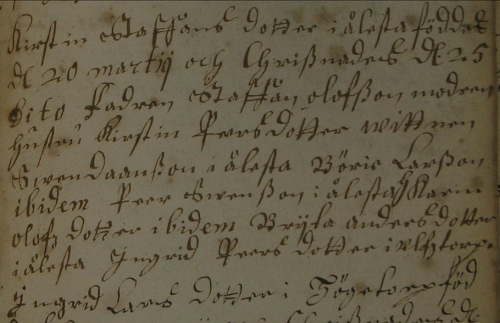 Kirstin Staffans dotter i älesta föddes
d 20 martij och Chrißnades d 25
dito Fadren Staffan olofßon modren
hustru Kirstin Peers dotter wittnen
Swen daanßon i älesta Börie Larßon
ibidem Peer Swenßon i älesta Karin
olofz dotter ibidem Bryta anders dotter
i älesta Ingrid Peers dotter i torp
Ingrid Lars dotter i Högetorp föd